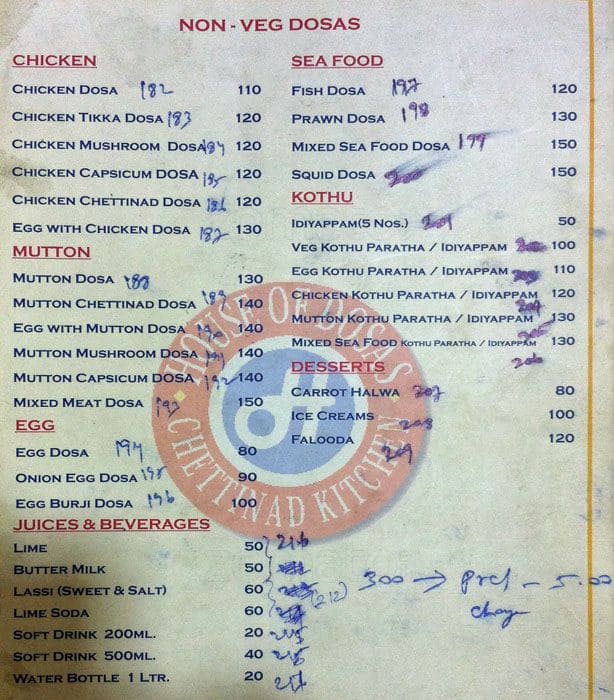 NON - VEG DOSAS
CHICKEN
CHICKEN DOSA 182 110
CHICKEN TIKKA DOSA 183 120
CHICKEN MUSHROOM DOSA 184 120
CHICKEN CAPSICUM DOSA 185 120
CHICKEN CHETTINAD DOSA 186 120
EGG WITH CHICKEN DOSA 187 130
MUTTON
MUTTON DOSA 188 130
MUTTON CHETTINAD DOSA 189 140
EGG WITH MUTTON DOSA 190 140
MUTTON MUSHROOM DOSA 191 140
MUTTON CAPSICUM DOSA 192 140
MIXED MEAT DOSA 193 150
EGG
EGG DOSA 194 80
ONION EGG DOSA 195 90
EGG BURJI DOSA 196 100
JUICES & BEVERAGES
LIME 50 216
BUTTER MILK 50
LASSI (SWEET & SALT) 60 (212)
LIME SODA 60
SOFT DRINK 200ML. 20 215
SOFT DRINK 500ML. 40 216
WATER BOTTLE 1 LTR. 20 217
SEA FOOD
FISH DOSA 197 120
PRAWN DOSA 198 130
MIXED SEA FOOD DOSA 199 150
SQUID DOSA 200 150
KOTHU
IDIYAPPAM(5 NOS.) 201 50
VEG KOTHU PARATHA / IDIYAPPAM 202 100
EGG KOTHU PARATHA / IDIYAPPAM 203 110
CHICKEN KOTHU PARATHA / IDIYAPPAM 204 120
MUTTON KOTHU PARATHA / IDIYAPPAM 205 130
MIXED SEA FOOD KOTHU PARATHA / IDIYAPPAM 206 130
DESSERTS
CARROT HALWA 207 80
ICE CREAMS 208 100
FALOODA 209 120
300 → - 5.00
HOUSE OF DOSAS
dh
CHETTINAD KITCHEN